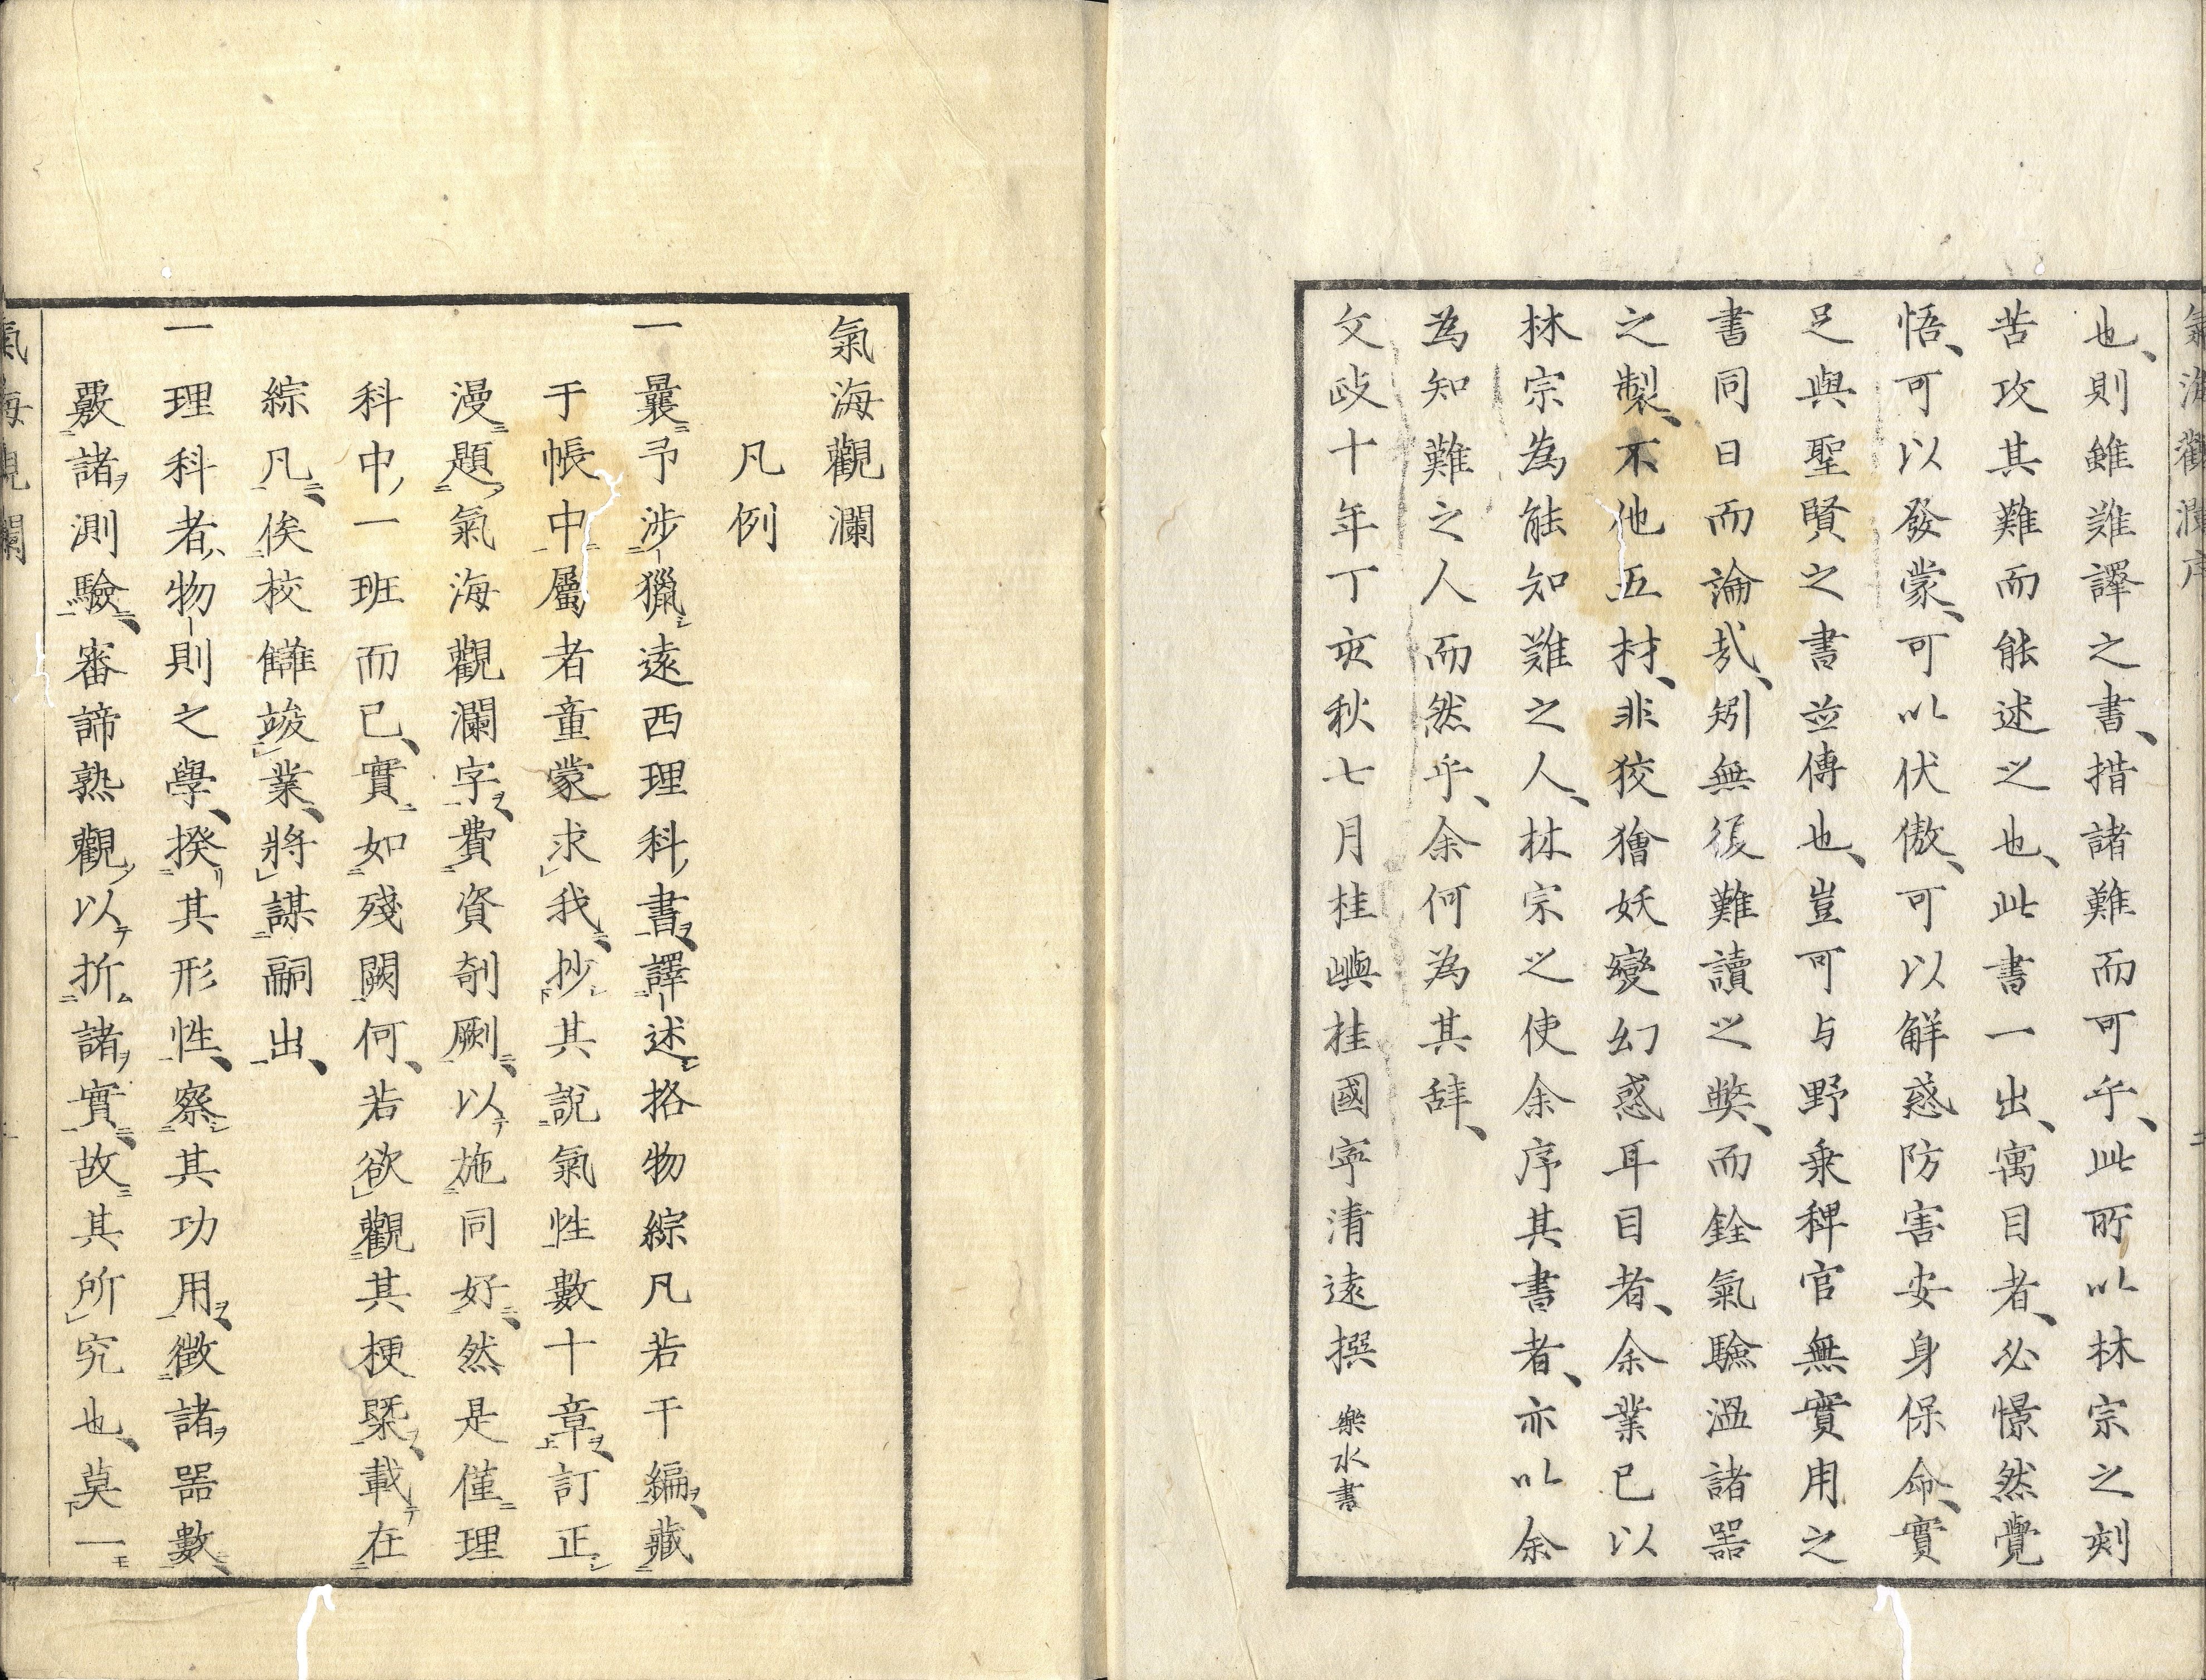 也、則雖難譯之書、措諸難而可乎、此所以林宗之刻
苦攻其難而能述之也、此書一出、寓目者、必憬然覺
悟、可以發蒙、可以伏傲、可以解惑防害安身保命、實
足與聖賢之書並傳也、豈可与野乘稗官無實用之
書同日而論哉、矧無復難讀之弊、而銓氣驗溫諸器
之製、不他五材、非狡獪妖變幻惑耳目者、余業已以
林宗為能知難之人、林宗之使余序其書者、亦以余
為知難之人而然乎、余何為其辞、
文政十年丁亥秋七月桂嶼桂國寧清遠撰 樂水書
氣海觀瀾
凡例
一曩予涉獵遠西理科書、譯述格物綜凡若干編、藏
于帳中屬者童蒙求我、抄其說氣性數十章、訂正
漫題氣海觀瀾字、費資剞劂、以施同好、然是僅理
科中一班而已、實如殘闕何、若欲觀其梗槩、載在
綜凡、俟校讎竣業、將謀嗣出、
一理科者、物則之學、揆其形性、察其功用、徵諸器數、
覈諸測驗、審諦熟觀、以折諸實、故其所究也、莫一